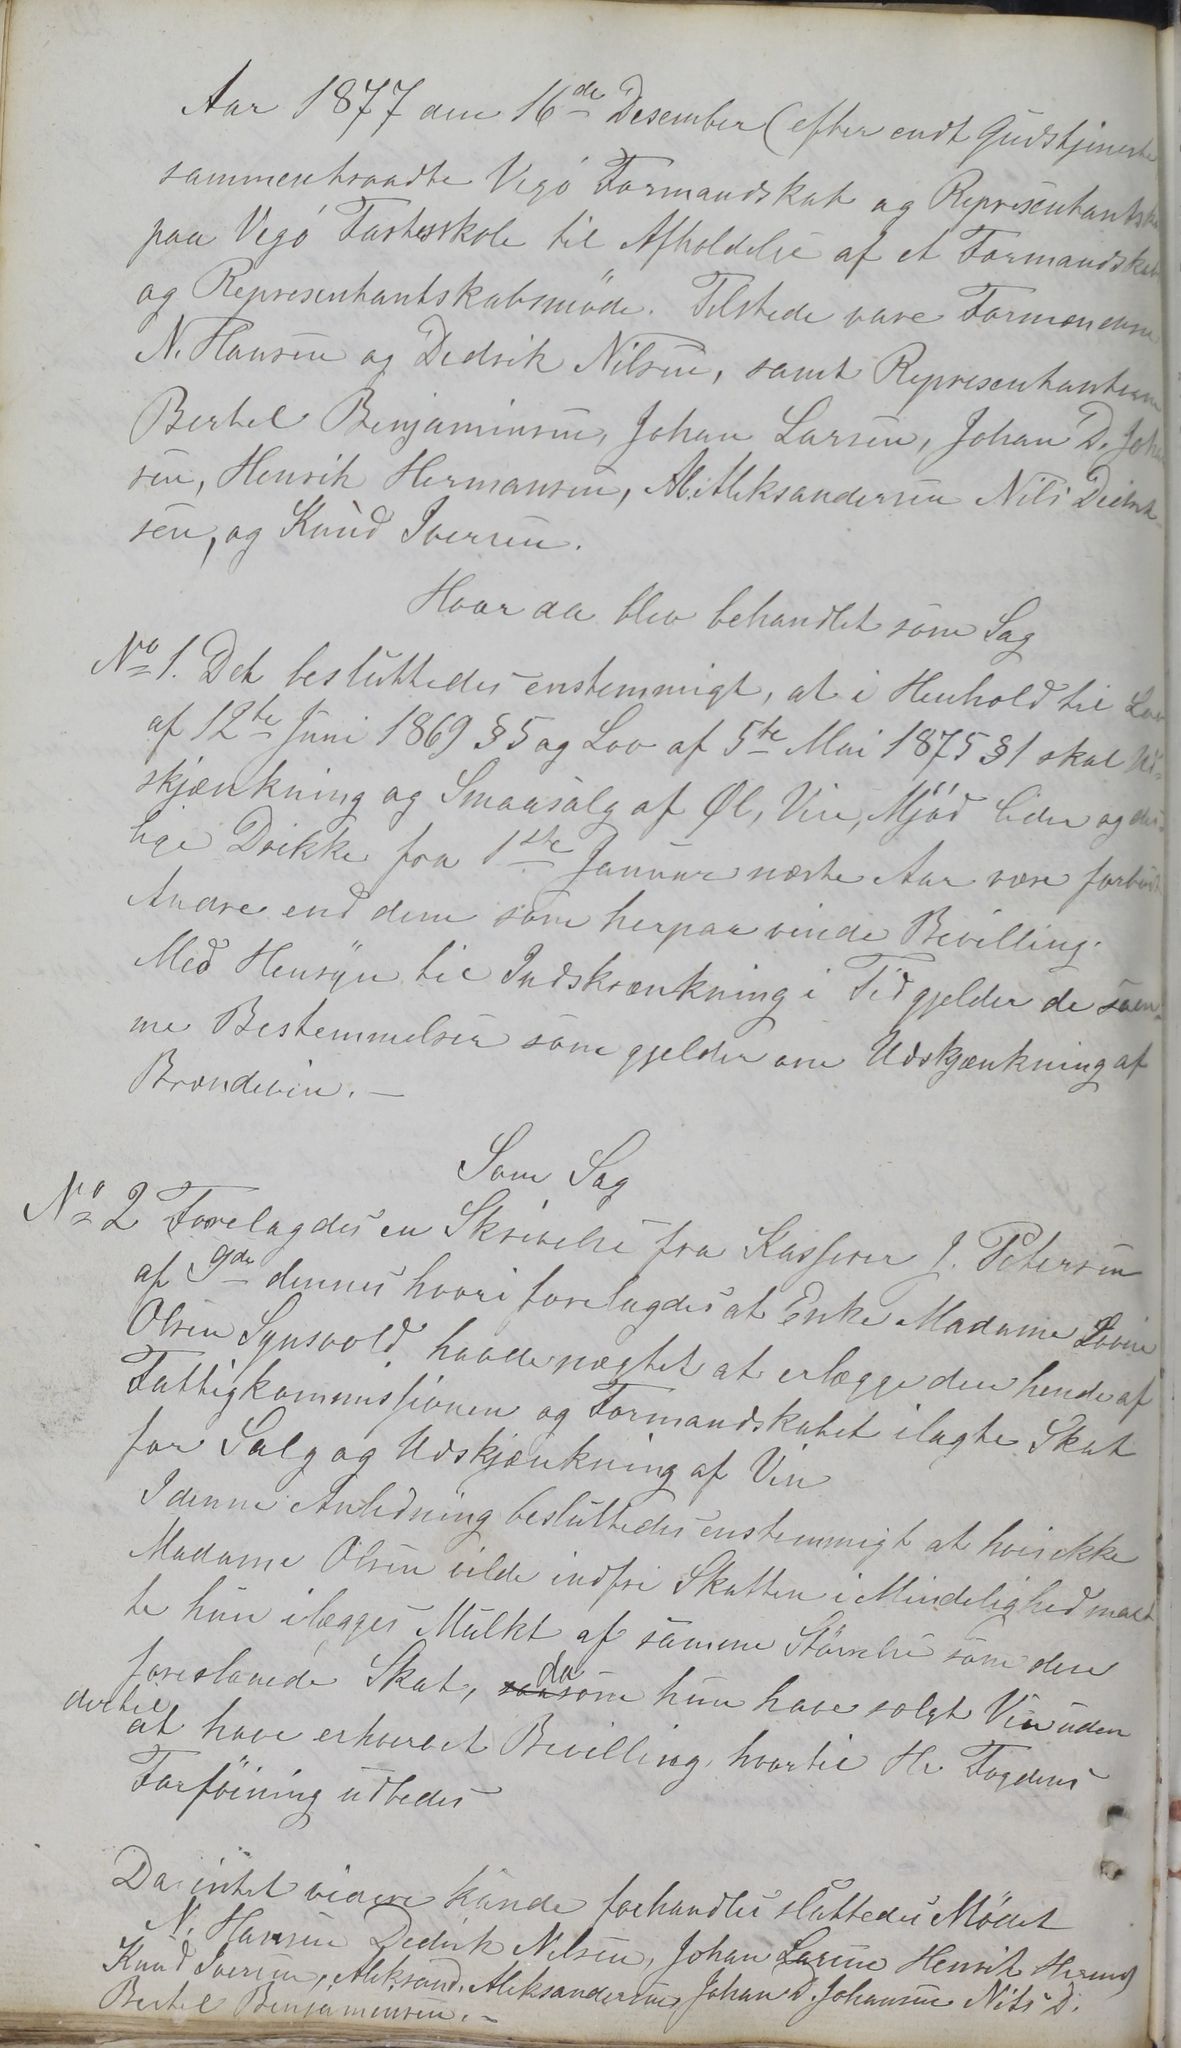 Aar 1877 den 16de Desember (efter endt Gudstjeneste
sammentraadte Vegö Formandskab og Representantska
paa Vegö Fasteskole til Afholdelse af et Formandskab
og Representantskabsmöde. Tilstede vare Formændene
N. Hansen og Dedrik Nilsen, samt Representanterne
Bertel Benjaminsen, Johan Larsen, Johan D. Joha
sen, Henrik Hermansen, Al. Aleksandersen Nils Diedrik
sen, og Knud Iversen.
Hvor da blev behandlet som Sag
No 1. Det besluttedes enstemmigt, at i Henhold til Lov
af 12te Juni 1869 § 5 og Lov af 5te Mai 1875 § 1 skal Ud-
skjænkning og Smaasalg af Øl, Vin, Mjöd Cider og des-
lige Drikke fra 1ste Januar næste Aar være forbudt
Andre end dem som herpaa vinde Bevilling.
Med Hensyn til Indskrænkning i Tid gjelder de sam-
me Bestemmelser som gjelder om Udskjænkning af
Brændevin. —
Som Sag
No 2 Forelagdes en Skrivelse fra Kasserer J. Petersen
af 9de dennes hvori forelagdes at Enke Madame Lovise
Olsen Synsvold, havde nægtet at erlægge den hende af
Fattigkommissionen og Formandskabet ilagte Skat
for Salg og Udskjænkning af Vin
I denne Anledning besluttedes enstemmigt at hvis ikke
Madame Olsen vilde indfri Skatten i Mindelighed maat
te hun ilægges Mulkt af samme Störrelse som den
foreslaaede Skat, da som hun have solgt Vin uden
dertil at have erhvervet Bevilling, hvortil Hr Fogdens
Forföining udbedes
Da intet videre kunde forhandles sluttedes Mödet
N. Hansen Dedrik Nilsen, Johan Larsen Henrik Herms
Knud Iversen, Aleksand. Aleksandersen, Johan D. Johansen Nils D.
Bertel Benjamensen. —